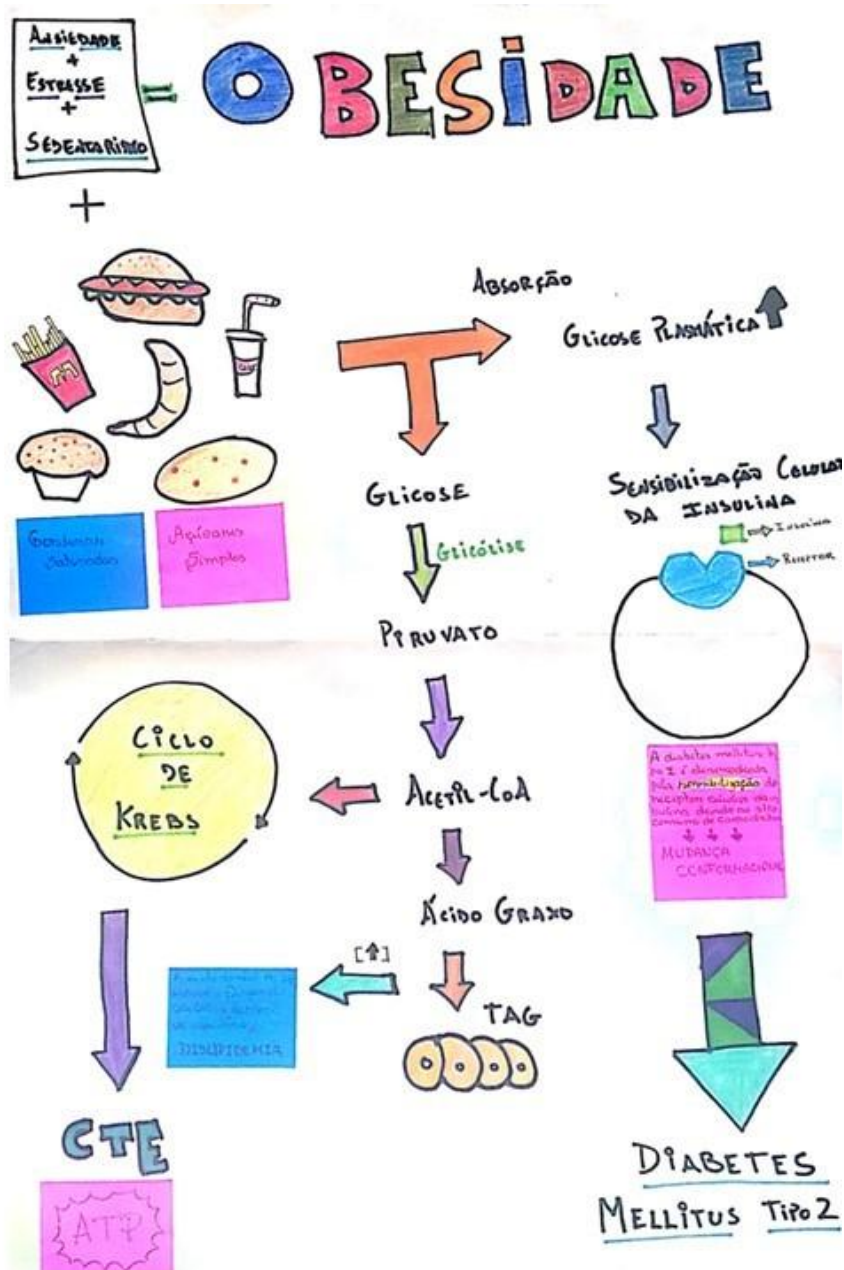 ANSIEDADE
+
ESTRESSE
+
SEDENTARISMO
=
OBESIDADE
+
ABSORÇÃO
GLICOSE PLASMÁTICA
GLICOSE
SENSIBILIZAÇÃO CELULAR
DA INSULINA
INSULINA
RECEPTOR
Gorduras
Saturadas
Açúcares
Simples
GLICÓLISE
PIRUVATO
CICLO
DE
KREBS
ACETIL-COA
A diabetes mellitus
é desencadeada
pela sensibilização de
receptores celulares da
devido ao alto
consumo de
MUDANÇA
CONFORMACIONAL
ÁCIDO GRAXO
[↑]
TAG
DISLIPIDEMIA
CTE
ATP
DIABETES
MELLITUS TIPO 2